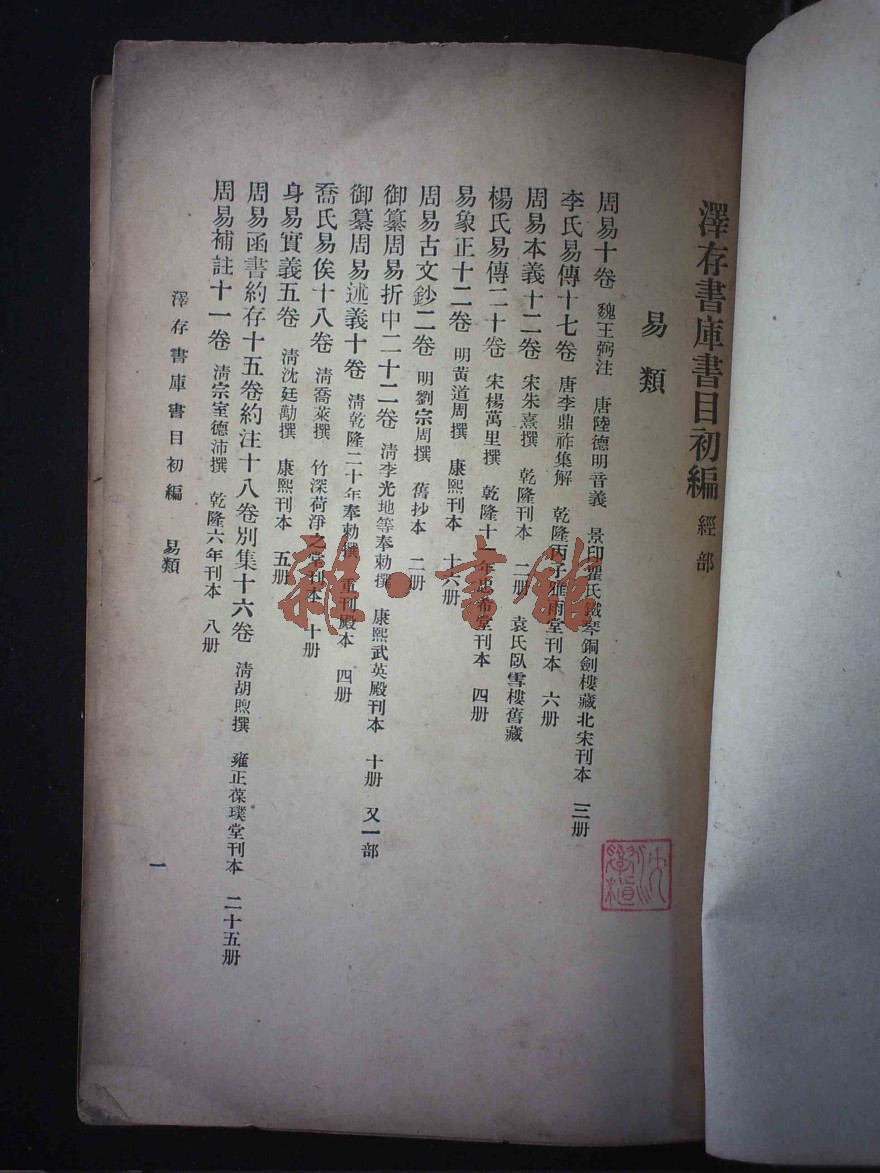 澤存書庫書目初編 經部
易類
周易十卷 魏王弼注 唐陸德明音義 景印瞿氏鐵琴銅劍樓藏北宋刊本 三册
李氏易傳十七卷 唐李鼎祚集解 乾隆丙子雅雨堂刊本 六册
周易本義十二卷 宋朱熹撰 乾隆刊本 二册 袁氏臥雪樓舊藏
楊氏易傳二十卷 宋楊萬里撰 乾隆十一年 希堂刊本 四册
易象正十二卷 明黃道周撰 康熙刊本 十六册
周易古文鈔二卷 明劉宗周撰 舊抄本 二册
御纂周易折中二十二卷 清李光地等奉勅撰 康熙武英殿刊本 十册 又一部
御纂周易述義十卷 清乾隆二十年奉勅撰 重刊殿本 四册
喬氏易俟十八卷 清喬萊撰 竹深荷淨之堂刊本 十册
身易實義五卷 清沈廷勱撰 康熙刊本 五册
周易函書約存十五卷約注十八卷別集十六卷 清胡煦撰 雍正葆璞堂刊本 二十五册
周易補註十一卷 清宗室德沛撰 乾隆六年刊本 八册
澤存書庫書目初編 易類
一
雜·書館